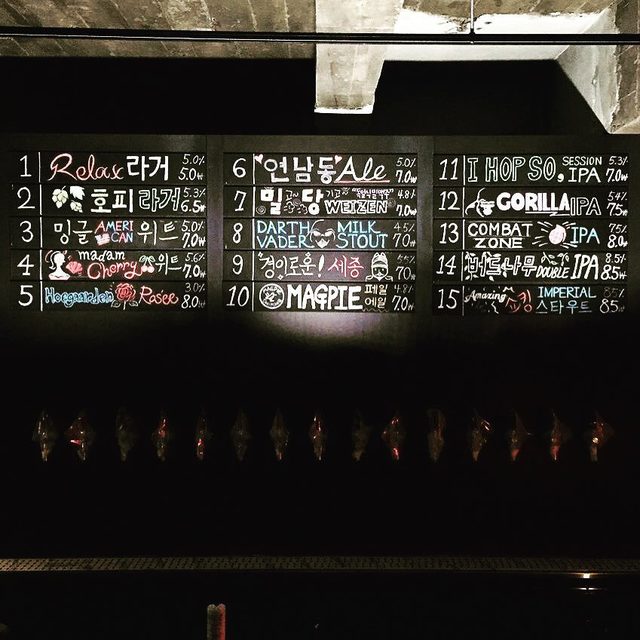 1 Relax 라거 5.0% 7.0₩
2 호피 라거 5.3% 6.5₩
3 밍글 AMERICAN 위트 5.0% 7.0₩
4 madam Cherry 위트 5.6% 7.0₩
5 Hoegaarden Rosée 3.0% 8.0₩
6 연남동 Ale 5.0% 7.0₩
7 밀고당기고 WEIZEN 4.8% 7.0₩
8 DARTH VADER MILK STOUT 4.5% 7.0₩
9 경이로운! 세종 7.0₩
10 MAGPIE 페일 에일 4.8% 7.0₩
11 I HOP SO, SESSION IPA 5.3% 7.0₩
12 GORILLA IPA 7.5₩
13 COMBAT ZONE IPA 8.0₩
14 나무 DOUBLE IPA 8.5% 8.5₩
15 Amazing IMPERIAL 스타우트 8.5₩